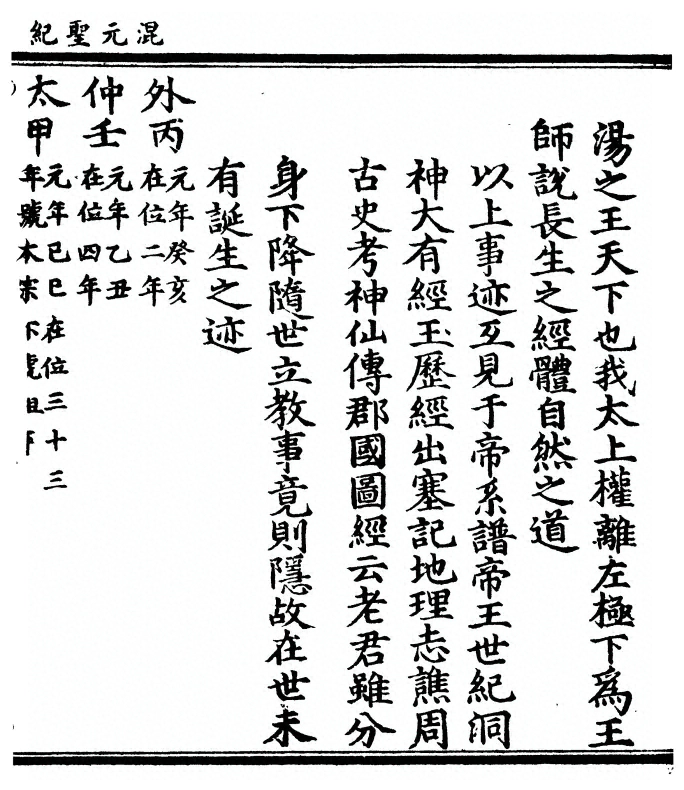 混元聖紀
湯之王天下也我太上權離左極下爲王
師說長生之經體自然之道
以上事迹互見于帝系譜帝王世紀洞
神大有經玉歷經出塞記地理志譙周
古史考神仙傳郡國圖經云老君雖分
身下降隨世立教事竟則隱故在世未
有誕生之迹
外丙
元年癸亥
在位二年
仲壬
元年乙丑
在位四年
太甲
元年己巳在位三十三
年號